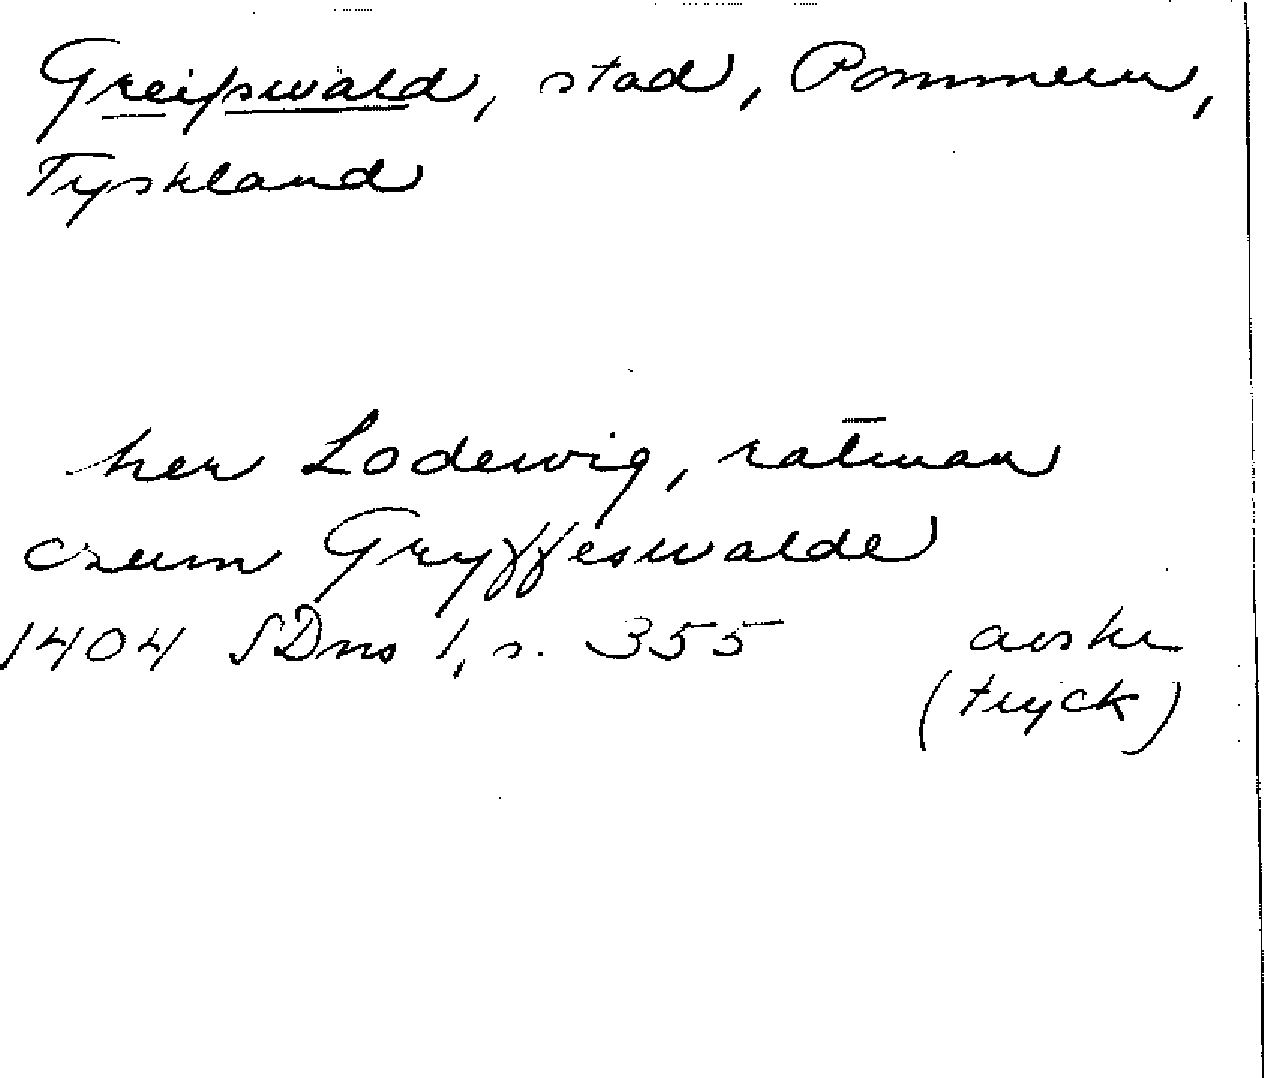 Greifswald, stad, Pommern,
Tyskland
her Lodewig, ratman
czum Gryffeswalde
1404 SDns 1, s. 355 avskr
(tryck)